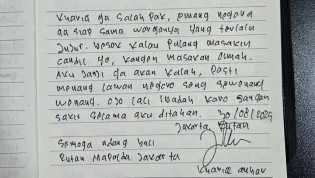 Khariq ga salah pak, emang negara
ga siap sama warganya yang terlalu
jujur. besok kalau pulang masakin
cambil yo, kangen masakan rumah.
Aku janji ga akan kalah, pasti
menang lawan negoro sing sewenang
wenang. ojo lali ibadah karo jangan
sakit selama aku ditahan. 30/08/2025
Jakarta
Semoga adang hati
Rutan Mapolda Jakarta
Khariq Anhar